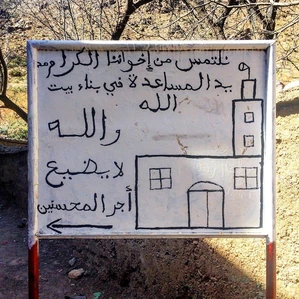 نلتمس من إخواننا الكرام مد
يد المساعدة في بناء بيت
الله
والله
لا يضيع
أجر المحسنين